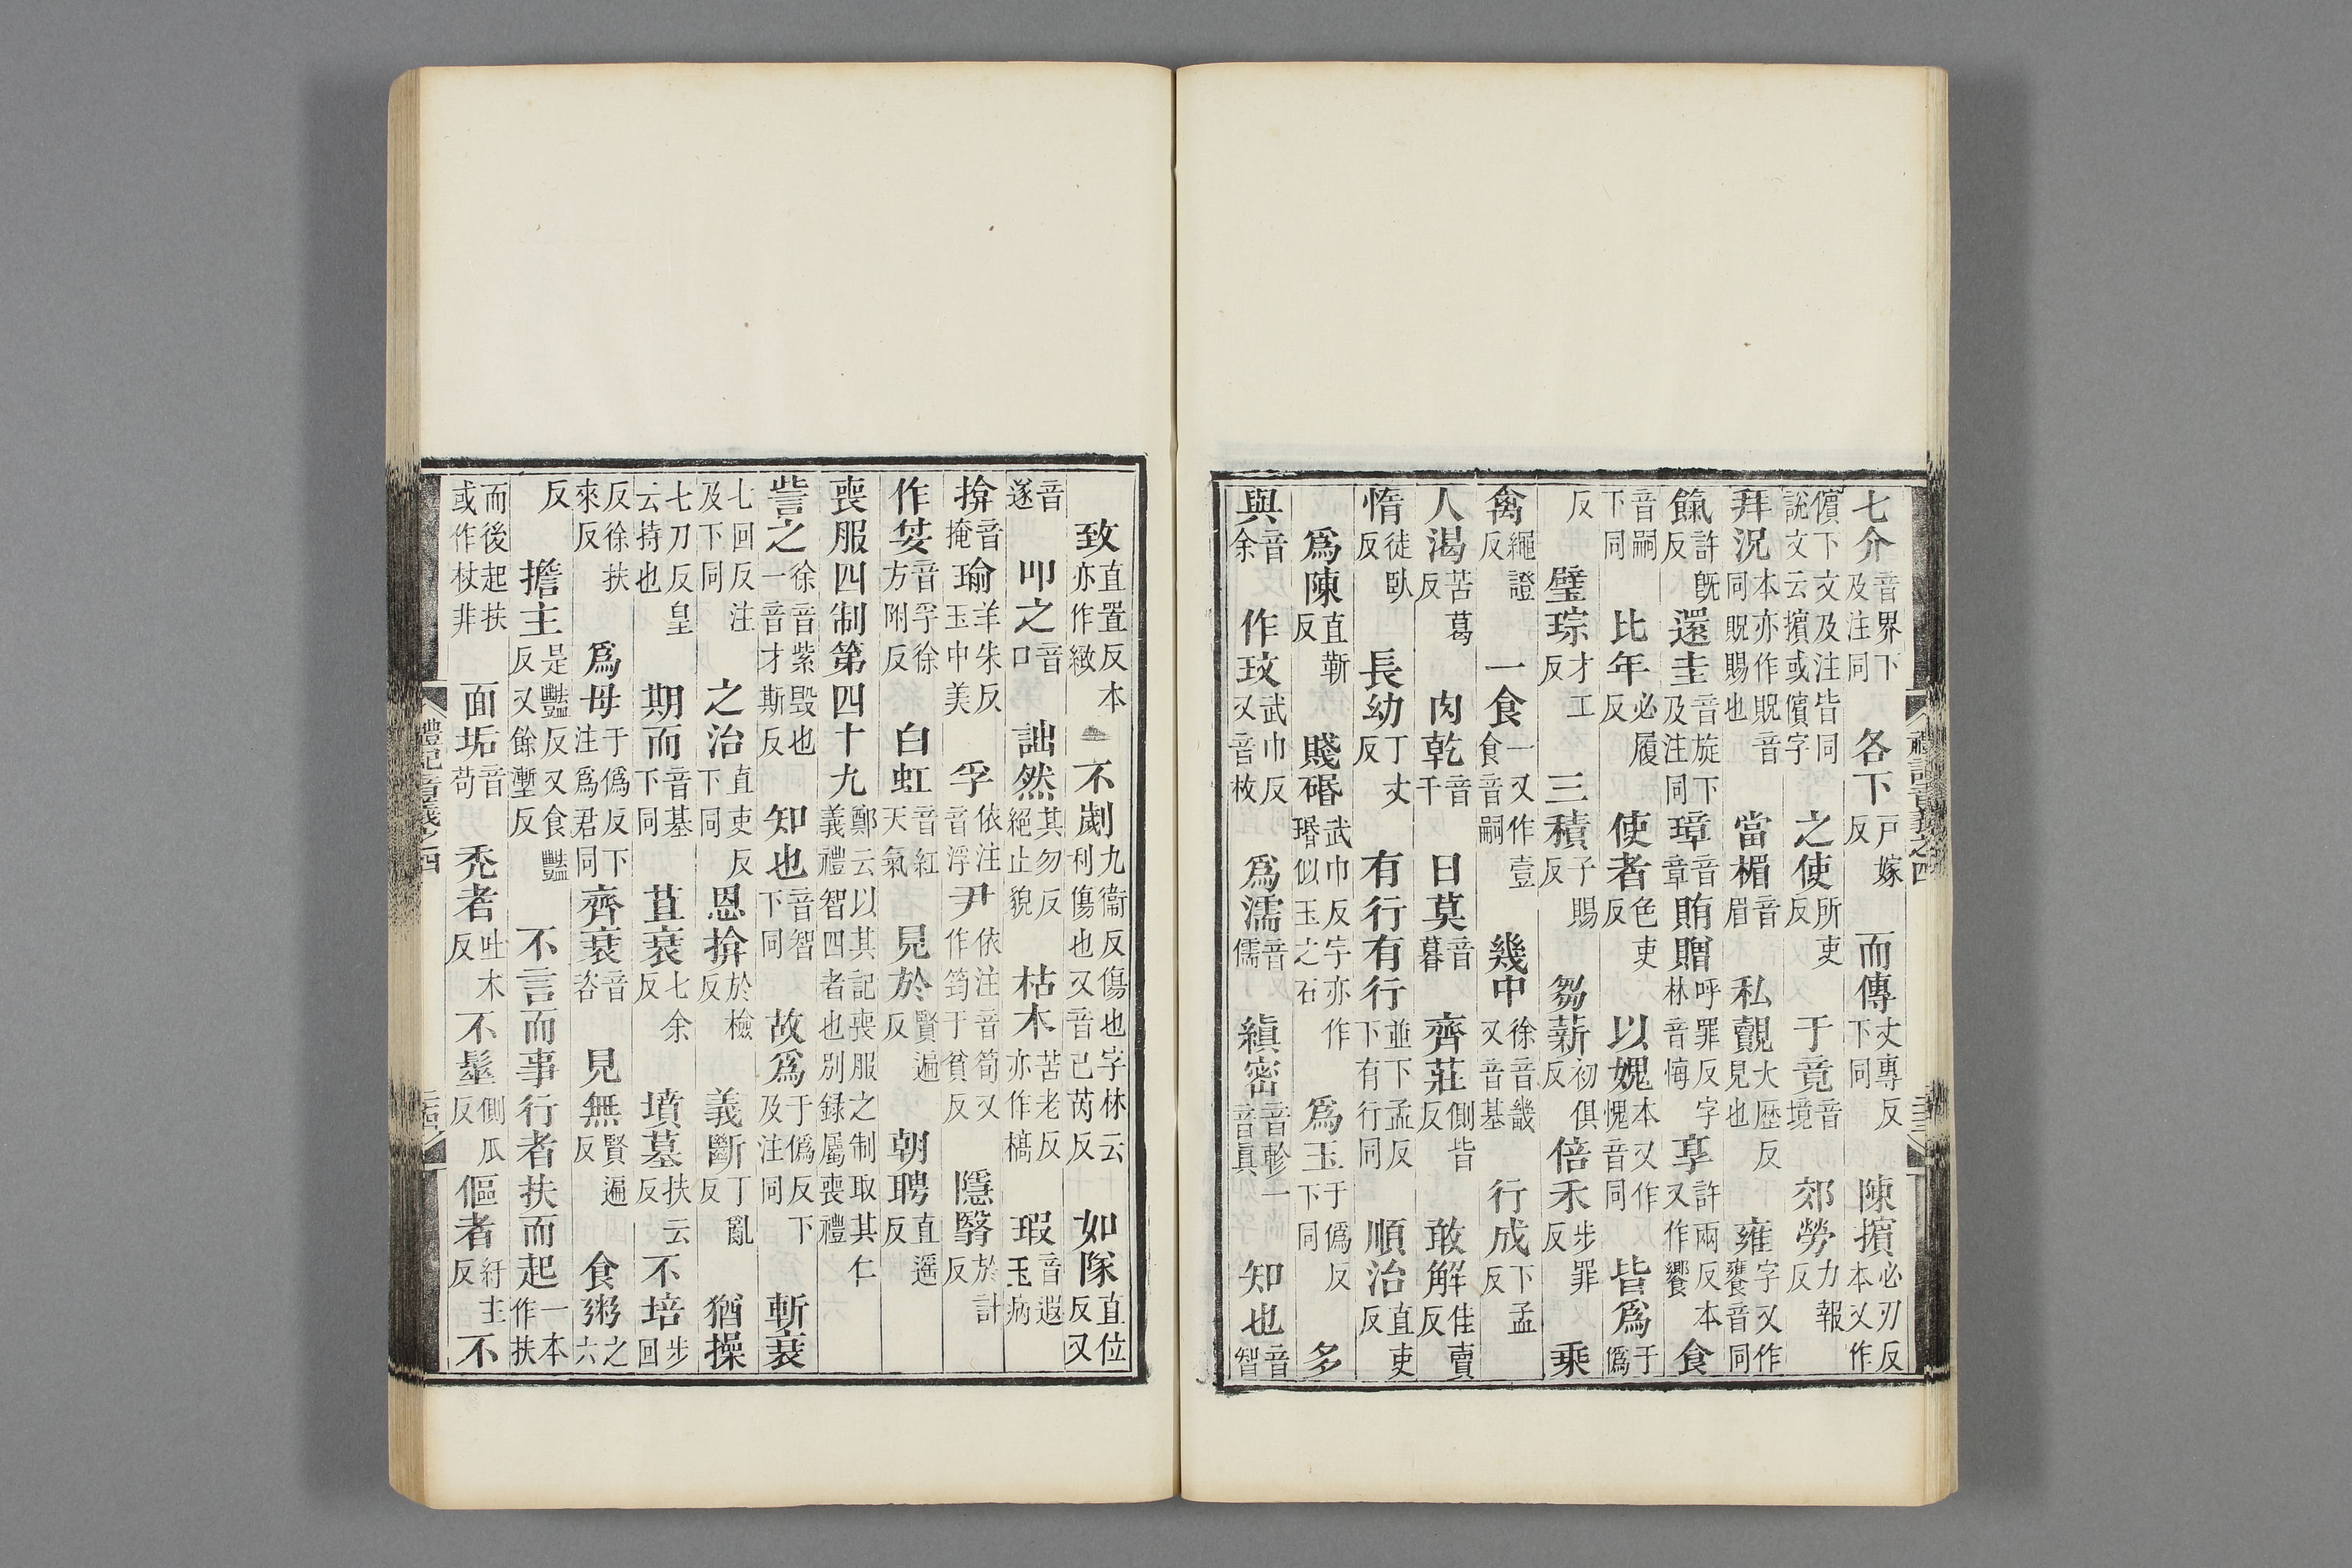 七介音界下及注同各下戶嫁反而傳丈專反下同陳擯必刃反本又作
儐下文及注皆同說文云擯或儐字之使所吏反于竟音境郊勞力報反
拜況本亦作貺音同貺賜也當楣音眉私覿大歷反見也雍字又作饔音同
餼許旣反還圭音旋下及注同璋音章賄贈呼罪反字林音悔享許兩反本又作饗食
音嗣下同比年必履反使者色吏反以媿本又作愧音同皆爲于僞
反璧琮才工反三積子賜反芻薪初俱反倍禾步罪反乘
禽繩證反一食一又作壹食音嗣幾中徐音畿又音基行成下孟反
人渴苦葛反肉乾音干日莫音暮齊莊側皆反敢解佳賣反
惰徒臥反長幼丁丈反有行有行並下孟反下有行同順治直吏反
爲陳直靳反賤碈武巾反字亦作瑉似玉之石爲玉于僞反下同多
與音余作玟武巾反又音枚爲濡音儒縝密音軫一音眞知也音智
禮記音義之四
致直置反本亦作緻不劌九衞反傷也字林云利傷也又音己芮反如隊直位反又
音遂叩之音口詘然其勿反絕止貌枯木苦老反亦作槁瑕音遐玉病
揜音掩瑜羊朱反玉中美孚依注音浮尹依注音筍又作筠于貧反隱翳於計反
作姇音孚徐方附反白虹音紅天氣見於賢遍反朝聘直遥反
喪服四制第四十九鄭云以其記喪服之制取其仁義禮智四者也別録屬喪禮
訾之徐音紫毀也一音才斯反知也音智下同故爲于僞反下及注同斬衰
七回反注及下同之治直吏反下同恩揜於檢反義斷丁亂反猶操
七刀反皇云持也期而音基下同苴衰七余反墳墓扶云反不培步回
反徐扶來反爲母于僞反下注爲君同齊衰音咨見無賢遍反食粥之六
反擔主是豔反又食豔反又餘壍反不言而事行者扶而起一本作扶
而後起扶或作杖非面垢音苟禿者吐木反不髽側瓜反傴者紆主反不
禮記音義之四